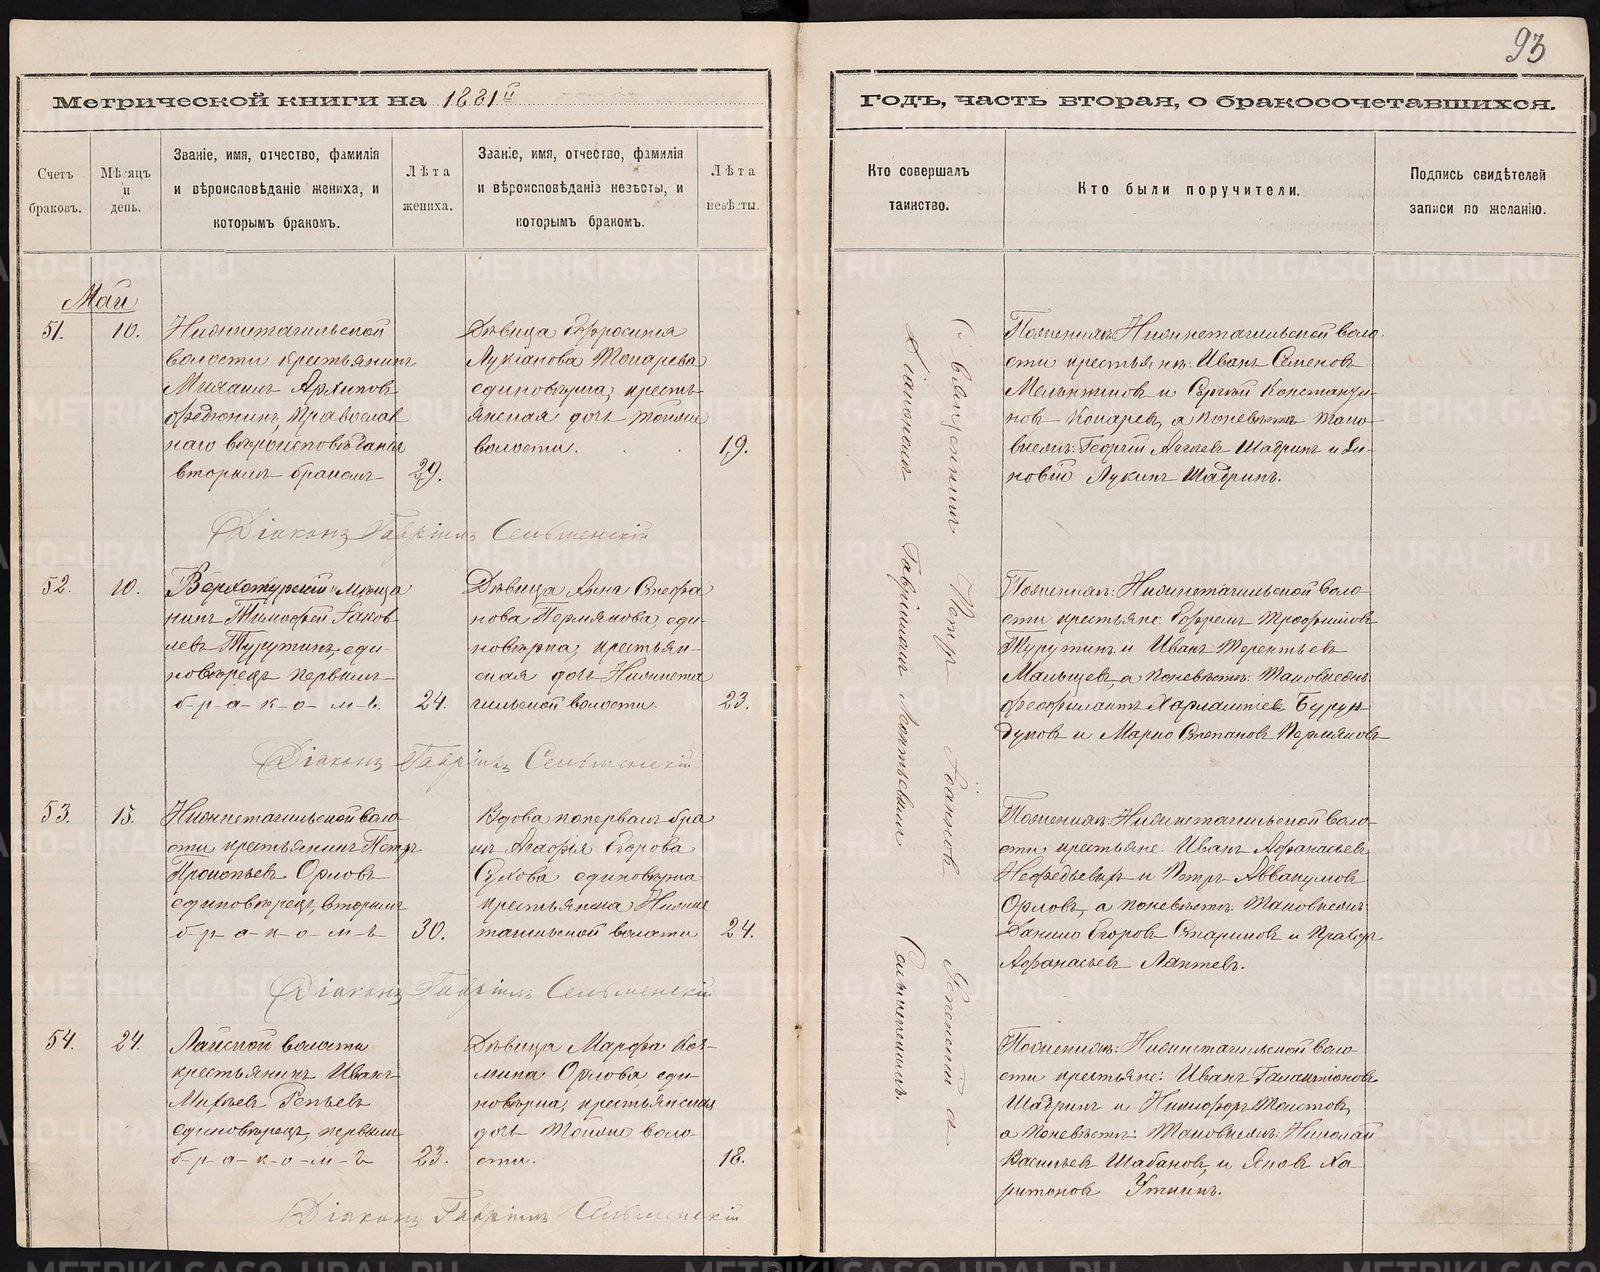 93
Метрической книги на 1881й
годъ, часть вторая, о бракосочетавшихся.
Счетъ браковъ.
Мѣсяцъ и день.
Званіе, имя, отчество, фамилія
и вѣроисповѣданіе жениха, и
которымъ бракомъ.
Лѣта жениха.
Званіе, имя, отчество, фамилія
и вѣроисповѣданіе невѣсты, и
которымъ бракомъ.
Лѣта невѣсты.
Кто совершалъ
таинство.
Кто были поручители.
Подпись свидѣтелей
записи по желанію.
Май
51.
10.
Нижнетагильской
волости крестьянинъ
Михаилъ Архиповъ
Ѳедюнинъ, Православ
наго вѣроисповѣданія
вторымъ бракомъ
29.
Дѣвица Ефросинія
Лукіанова Токарева
единовѣрка, кресть-
янская дочь тойже
волости.
19.
Поженихѣ: Нижнетагильской воло-
сти крестьяне: Иванъ Семеновъ
Мельниковъ и Сергѣй Константи-
новъ Кокаревъ, а поневѣстѣ тако-
выежъ: Георгій Аггеевъ Шадринъ и Зи-
новій Лукинъ Шадринъ.
Діаконъ Гавріилъ Сельменскій
52.
10.
Верхотурскій мѣща
нинъ Тимофей Іаков
левъ Турутинъ, еди-
новѣрецъ первымъ
б-р-а-к-о-м-ъ.
24.
Дѣвица Анна Стефа
нова Пермякова, еди-
новѣрка, крестьян-
ская дочь Нижнета
гильской волости.
23.
Поженихѣ: Нижнетагильской воло-
сти крестьяне: Ефремъ Трофимовъ
Турутинъ и Иванъ Терентьевъ
Мальцевъ, а поневѣстѣ: таковыежъ:
Ѳеофилактъ Харлампіевъ Бурун-
дуковъ и Марко Степановъ Пермяковъ
Діаконъ Гавріилъ Сельменскій
53.
15.
Нижнетагильской воло
сти крестьянинъ Петръ
Прокопьевъ Орловъ
единовѣрецъ, вторымъ
б-р-а-к-о-м-ъ
30.
Вдова попервомъ бра
кѣ Агафія Егорова
Сухова единовѣрка
крестьянка Нижне
тагильской волости
24.
Поженихѣ: Нижнетагильской воло-
сти крестьяне: Иванъ Афанасьевъ
Нефедьевъ и Петръ Аввакумовъ
Орловъ, а поневѣстѣ: таковыежъ:
Данило Егоровъ Стариковъ и
Афанасьевъ Лаптевъ.
Діаконъ Гавріилъ Сельменскій
54.
24.
Лайской волости
крестьянинъ Иванъ
Михѣевъ Репьевъ
единовѣрецъ, первымъ
б-р-а-к-о-м-ъ
23.
Дѣвица Марфа Коз-
мина Орлова, еди
новѣрка, крестьянская
дочь тойже воло
сти.
18.
Поженихѣ: Нижнетагильской воло
сти крестьяне: Иванъ Галактіоновъ
Шадринъ и Никифоръ Толстовъ,
а поневѣстѣ: таковыежъ: Николай
Васильевъ Шабановъ, и Яковъ Ха-
ритоновъ Уткинъ.
Діаконъ Гавріилъ Сельменскій
Священникъ Петръ Іоанновъ съ
Діакономъ Гавріиломъ
METRIKI.GASO-URAL.RU